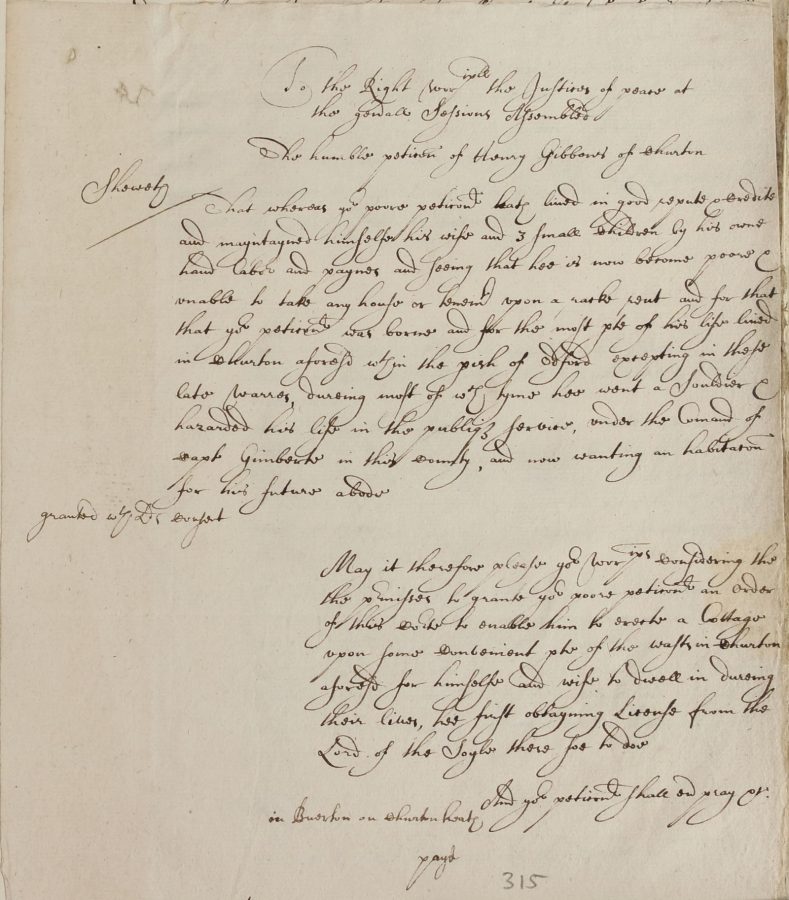 To the Right Worr ipll the Justices of peace at
the gen'all Sessions Assembled
The humble peticon of Henry Gibbons of Churton
Sheweth
That whereas yor poore peticonr hath lived in good repute & Credite
and mayntayned himselfe his wife and 3 small Children by his owne
hand labor and paynes and seeing that hee is now become poore &
unable to take any house or tenemt upon a racke rent and for that
that yor peticonr was borne and for the most pte of his life lived
in Churton aforesd wthin the pish of Odford excepting in these
late warres, dureing most of wch tyme hee went a Souldier &
hazarded his life in the publiq service, under the Comand of
Capt Gimberte in this County, and now wanting an habitacon
for his future abode
granted wth Lds Consent
May it therefore please yor Worr ips Considering the
the pmisses to grante yor poore peticonr an order
of this Courte to enable him to erecte a Cottage
upon some Convenient pte of the wast in Churton
aforesd for himselfe and wife to dwell in dureing
their lives, hee first obtayning License from the
Lord of the Soyle there soe to doe
And yor peticonr shall ev pray &c.
in Buerton on Churton heath
315